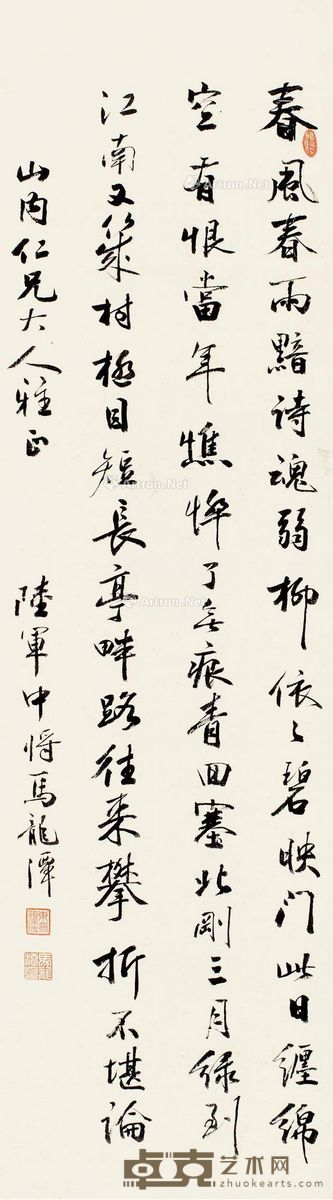 春風春雨黯詩魂弱柳依々碧映門此日纏綿
空有恨當年憔悴了無痕青回塞北剛三月綠到
江南又幾村極目短長亭畔路往来攀折不堪論
山内仁兄大人雅正
陸軍中將馬龍潭
Artron.Net
卓克艺术网
www.zhuokearts.com